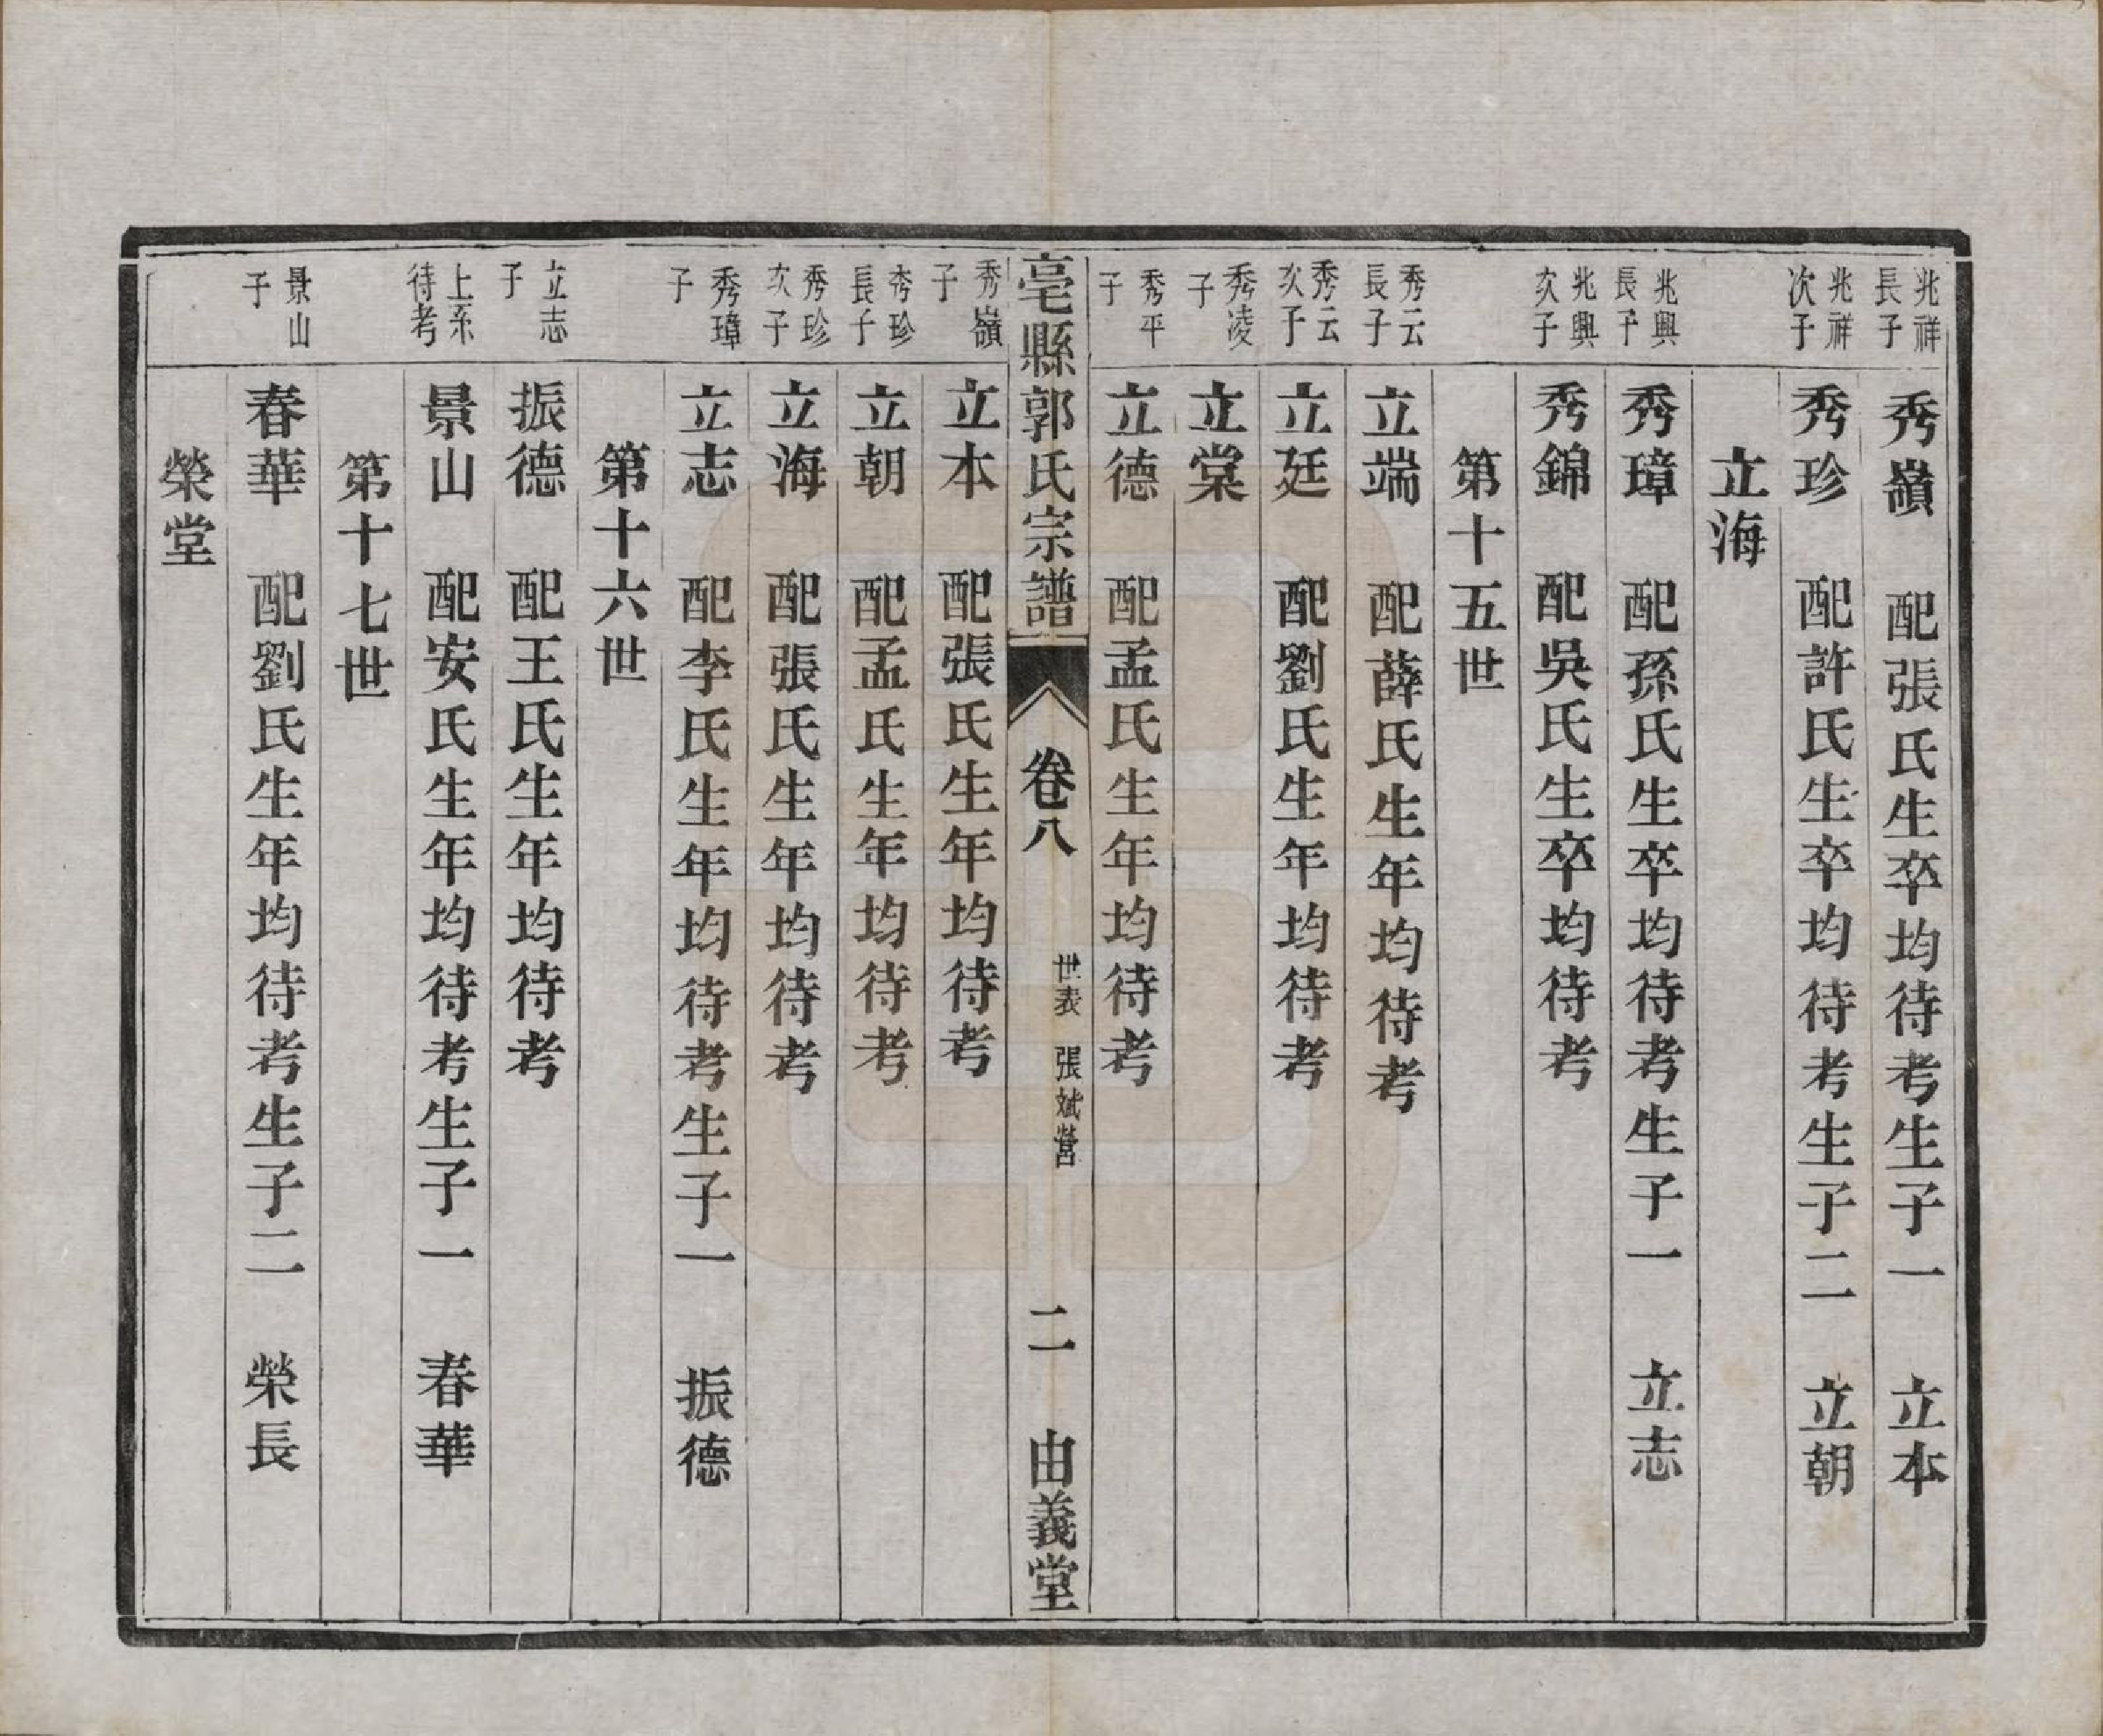 兆祥長子
秀嶺　配張氏生卒均待考生子一　立本
兆祥次子
秀珍　配許氏生卒均待考生子二　立朝
立海
兆興長子
秀璋　配孫氏生卒均待考生子一　立志
兆興次子
秀錦　配吳氏生卒均待考
第十五世
秀云長子
立端　配薛氏生年均待考
秀云次子
立廷　配劉氏生年均待考
秀凌子
立棠
秀平子
立德　配孟氏生年均待考
亳縣郭氏宗譜　卷八　世表　張斌營　二　由義堂
秀嶺子
立本　配張氏生年均待考
秀珍長子
立朝　配孟氏生年均待考
秀珍次子
立海　配張氏生年均待考
秀璋子
立志　配李氏生年均待考生子一　振德
第十六世
立志子
振德　配王氏生年均待考
上系待考
景山　配安氏生年均待考生子一　春華
第十七世
景山子
春華　配劉氏生年均待考生子二　榮長
榮堂